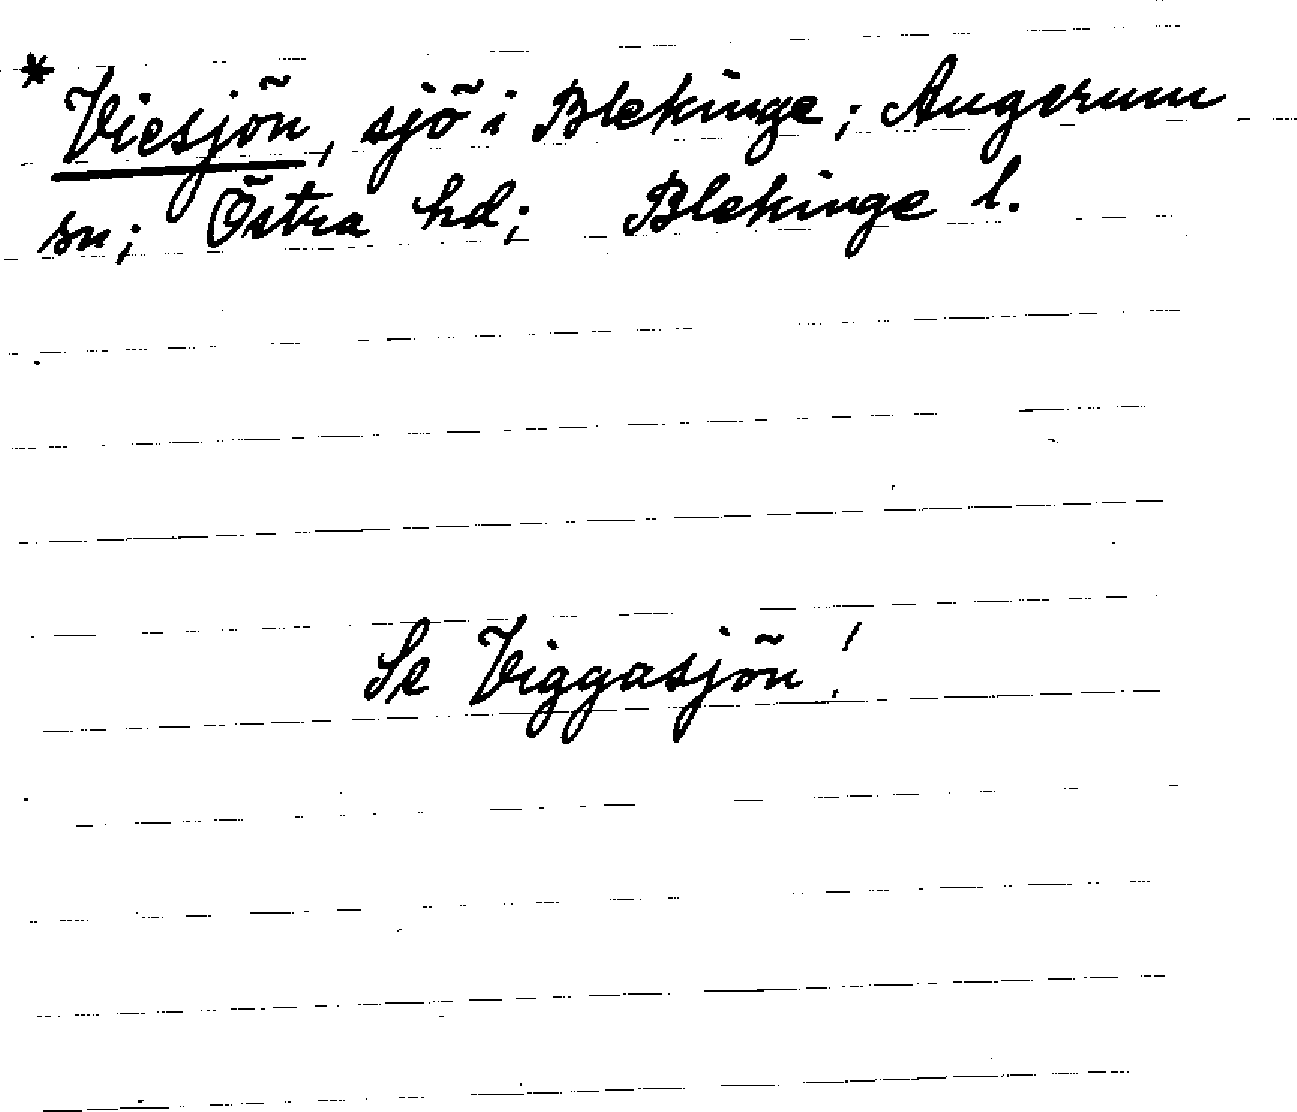 * Viesjön, sjö i Blekinge; Augerum
sn; Östra hd; Blekinge l.
Se Viggasjön!